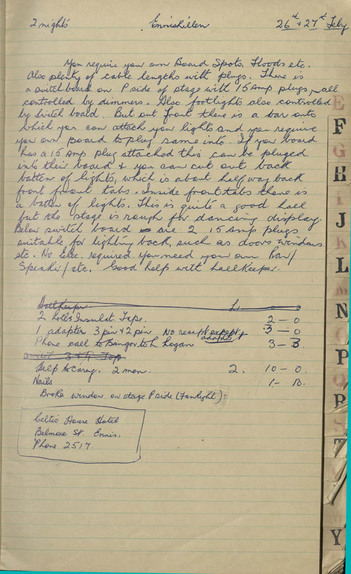 2 nights Enniskillen 26th & 27th Feby
You require your own Board Spots, Floods etc.
Also plenty of cable lengths with plugs. There is
a switch board on P side of stage with 15 Amp plugs, all
controlled by dimmers. Also footlights also controlled
by switch board. But out front there is a bar onto
which you can attach your lights and you require
your own board to plug same into. If your board
has a 15 Amp plug attached this can be pluged
into their board & you can cut out back
batten of lights, which is about half way back
from front tabs. Inside front tabs there is
a batten of lights. This is quite a good hall
but the stage is rough for dancing display
Below switch board are 2 15 Amp plugs
suitable for lighting back, such as doors windows
etc. No Lec. required you need your own Bar/
Speaker/etc. Good help with hallkeeper.
£
2 Rolls Insulat Tape. 2 - 0
1 adapter 3 pin & 2 pin No receipt except adapter 3 - 0
Phone call to Bangor to h Logan 3 - 3
Help to Carry. 2 men. 2. 10 - 0
Nails 1 - 10.
Broke window on stage P side (Fanlight)
Celtic House Hotel
Belmore St. Ennis.
Phone 2517
F
G
H
I
J
K
L
M
N
O
P
Q
R
S
T
Y